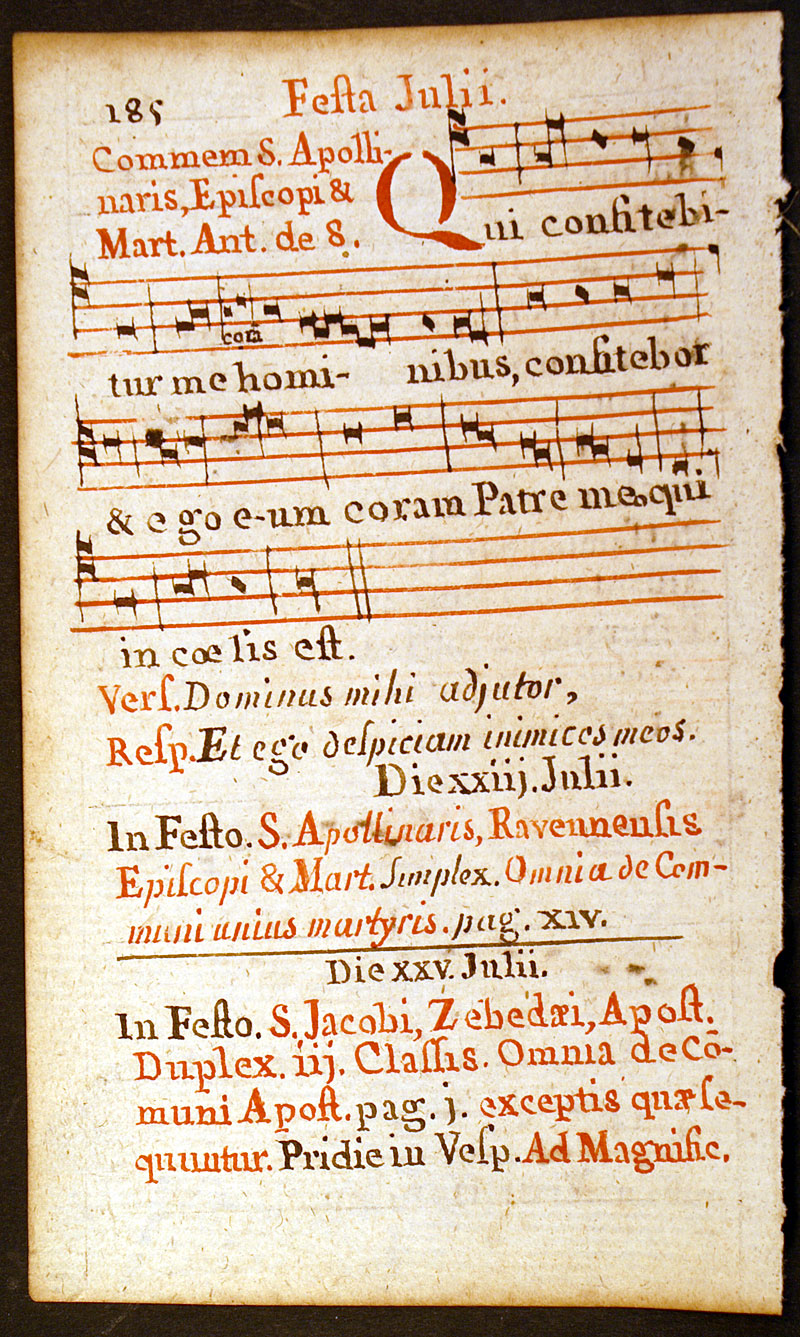 185 Feſta Julii.
Commem S. Apolli-
naris, Epiſcopi &
Mart. Ant. de 8.
Qui confitebi-
com̃
tur me homi- nibus, confitebor
& ego e-um coram Patre meo qui
in cœ lis eſt.
Verſ. Dominus mihi adjutor,
Reſp. Et ego deſpiciam inimicos meos.
Die xxiij. Julii.
In Feſto. S. Apollinaris, Ravennenſis
Epiſcopi & Mart. Simplex. Omnia de Com-
muni unius martyris. pag. XIV.
Die XXV. Julii.
In Feſto. S. Jacobi, Zebedæi, Apoſt.
Duplex. iij. Claſſis. Omnia de Cō-
muni Apoſt. pag. j. exceptis quæ ſe-
quuntur. Pridie in Veſp. Ad Magnific.